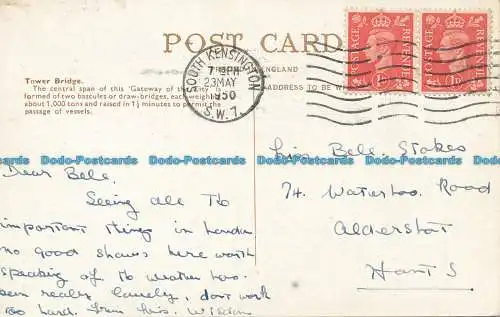 POST CARD
ENGLAND
ADDRESS TO BE
Tower Bridge.
The central span of this 'Gateway of the City' is
formed of two bascules or draw-bridges, each weighing
about 1,000 tons and raised in 1½ minutes to permit the
passage of vessels.
SOUTH KENSINGTON
23 MAY
1950
S.W.7.
POSTAGE REVENUE
1D 1D
POSTAGE REVENUE
1D 1D
Dodo-Postcards Dodo-Postcards Dodo-Postcards Dodo-Postcards Dodo-Postcards Dodo-Postcards
Dear Bele.
Seeing all the
important things in London
no good shows here worth
speaking of the weather has
been really lovely, don't work
too hard. from his.
Bele. Stokes
74. Waterloo Road
Aldershot
Hants
Dodo-Postcards Dodo-Postcards Dodo-Postcards Dodo-Postcards Dodo-Postcards Dodo-Postcards